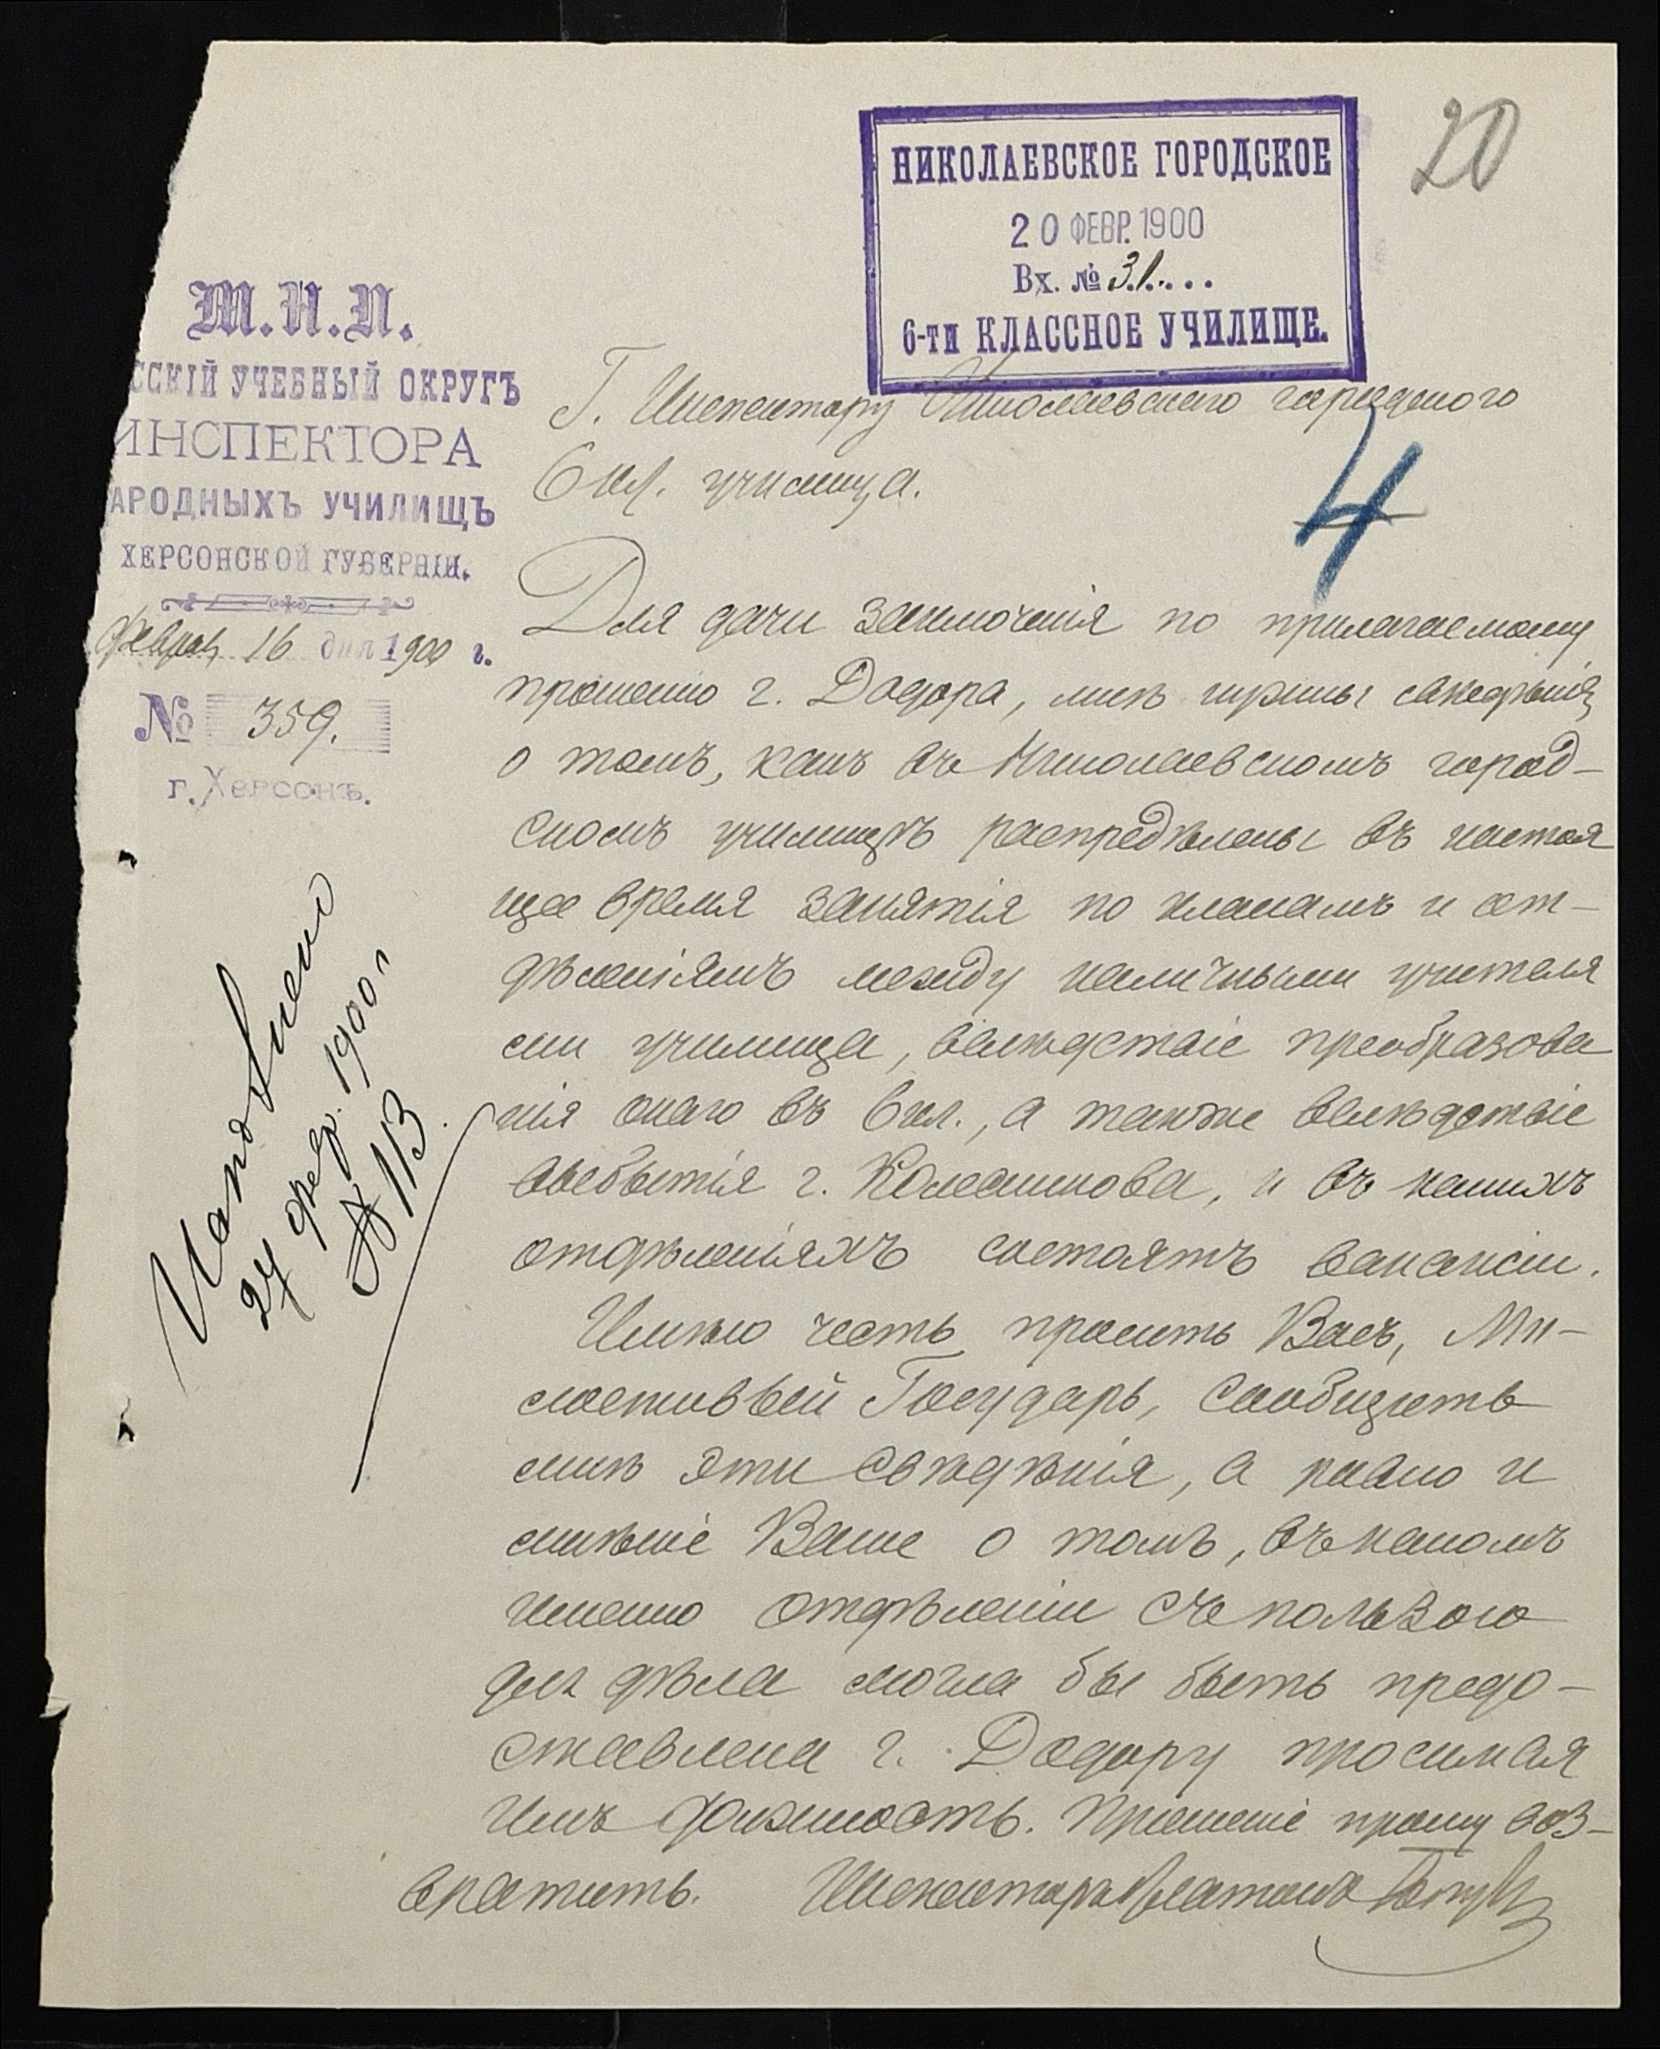 20
НИКОЛАЕВСКОЕ ГОРОДСКОЕ
20 ФЕВР. 1900
Вх. № 31....
6-ти КЛАССНОЕ УЧИЛИЩЕ.
М.Н.П.
ССКІЙ УЧЕБНЫЙ ОКРУГЪ
ИНСПЕКТОРА
АРОДНЫХЪ УЧИЛИЩЪ
ХЕРСОНСКОЙ ГУБЕРНІИ.
Феврал 16 дня 1900 г.
№ 359.
г. Херсонъ.
Г. Инспектору Николаевскаго городского
6 кл. училища.
4
Для дачи заключенія по прилагаемому
прошенію г. Додора, мнѣ нужны свѣдѣнія
о томъ, какъ въ Николаевскомъ город-
скомъ училищѣ распредѣлены въ настоя
щее время занятія по классамъ и от-
дѣленіямъ между наличными учителя
ми училища, вслѣдствіе преобразова
нія онаго въ 6 кл., а также вслѣдствіе
выбытія г. Колесникова, и въ какихъ
отдѣленіяхъ состоятъ вакансіи.
Имѣю честь просить Васъ, Ми-
лостивый Государь, сообщить
мнѣ эти свѣдѣнія, а равно и
мнѣніе Ваше о томъ, въ какомъ
именно отдѣленіи съ пользою
для дѣла могла бы быть предо-
ставлена г. Додору просимая
имъ должность. Прошеніе прошу воз-
вратить. Инспекторъ
24 февр. 1900 г
№ 113